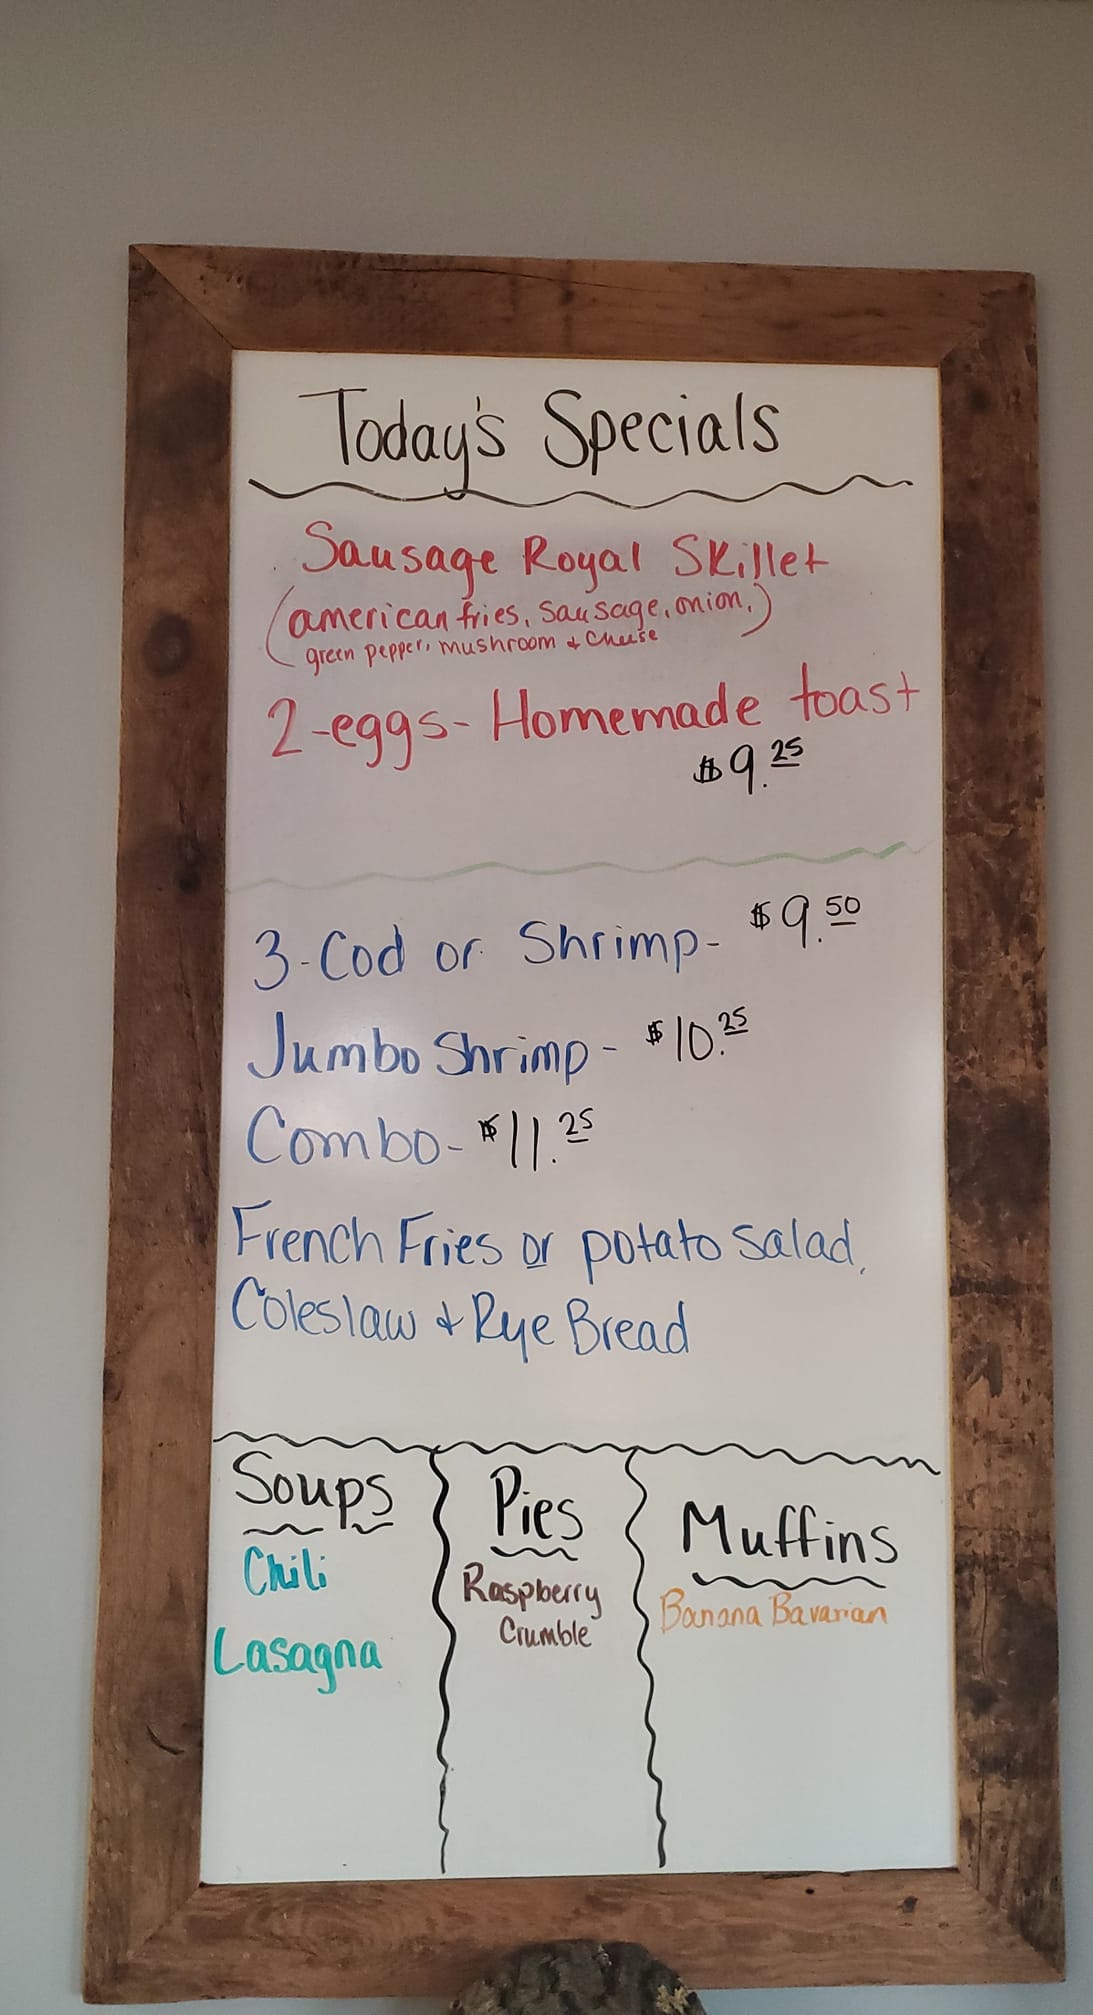 Today's Specials
Sausage Royal Skillet
(american fries, sausage, onion,)
green pepper, mushroom & cheese
2-eggs- Homemade toast
$9.25
3-Cod or Shrimp- $9.50
Jumbo Shrimp- $10.25
Combo- $11.25
French Fries or potato salad,
Coleslaw & Rye Bread
Soups
Chili
Lasagna
Pies
Raspberry
Crumble
Muffins
Banana Bavarian